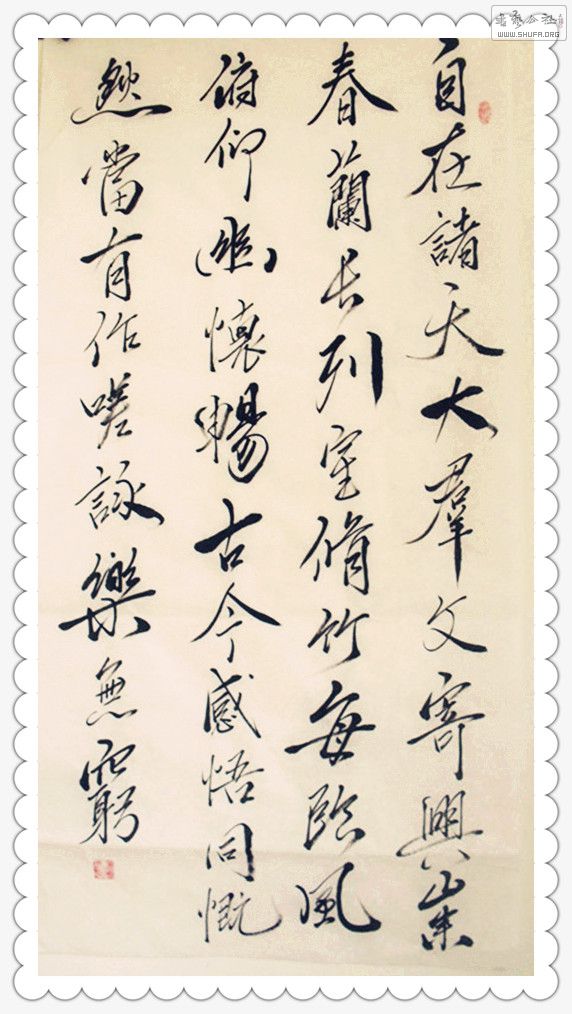 書藝公社
WWW.SHUFA.ORG
自在諸天大羣文寄興崇
春蘭長列室脩竹每臨風
俯仰幽懷暢古今感悟同慨
然當有作嗟詠樂無窮